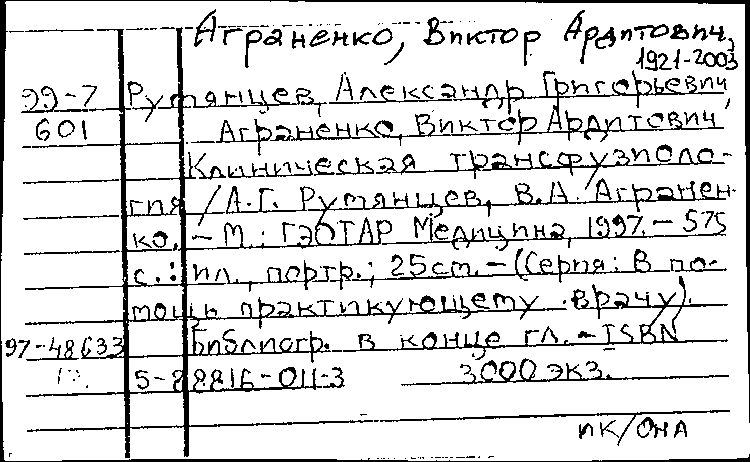 Аграненко, Виктор Ардитович,
1921-2003
99-7 Румянцев, Александр Григорьевич
601 Аграненко, Виктор Ардитович,
Клиническая трансфузиоло-
гия / А.Г. Румянцев, В.А. Агранен-
ко. – М.: ГЭОТАР Медицина, 1997. – 575
с. : ил., портр.; 25 см. – (Серия: В по-
мощь практикующему врачу).
97-48633 Библиогр. в конце гл. – ISBN
5-88816-011-3 3000 экз.
ПК/ОНА